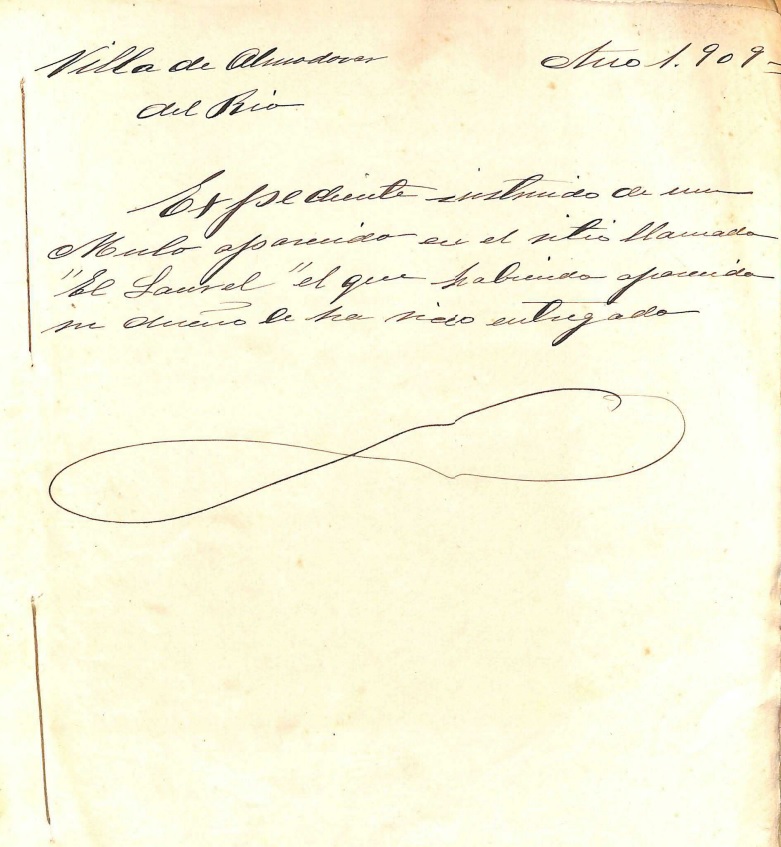 Villa de Almodovar Año 1.909=
del Rio
Expediente instruido de un
Mulo aparecido en el sitio llamado
"El Laurel" el que habiendo aparecido
su dueño le ha sido entregado